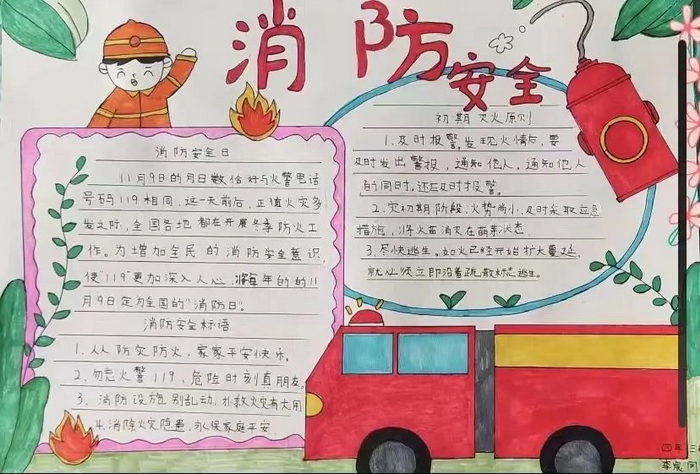 消防安全
消防安全日
11月9日的月日数恰好与火警电话
号码119相同,这一天前后,正值火灾多
发之际,全国各地都在开展冬季防火工
作。为增加全民的消防安全意识,
使"119"更加深入人心,将每年的的11
月9日定为全国的"消防日"。
消防安全标语
1.人人防灾防火,家家平安快乐。
2.勿忘火警119,危险时刻真朋友。
3.消防设施别乱动,扑救火灾有大用
4.消除火灾隐患,永保家庭平安
初期灭火原则
1.及时报警。发现火情后,要
及时发出警报,通知他人。通知他人
的同时,还应及时报警。
2.灾初期阶段,火势尚小,及时采取应急
措施,将火苗消灭在萌芽状态
3.尽快逃生。如火已经开始扩大蔓延,
就必须立即沿着疏散标志逃生。
四年
李